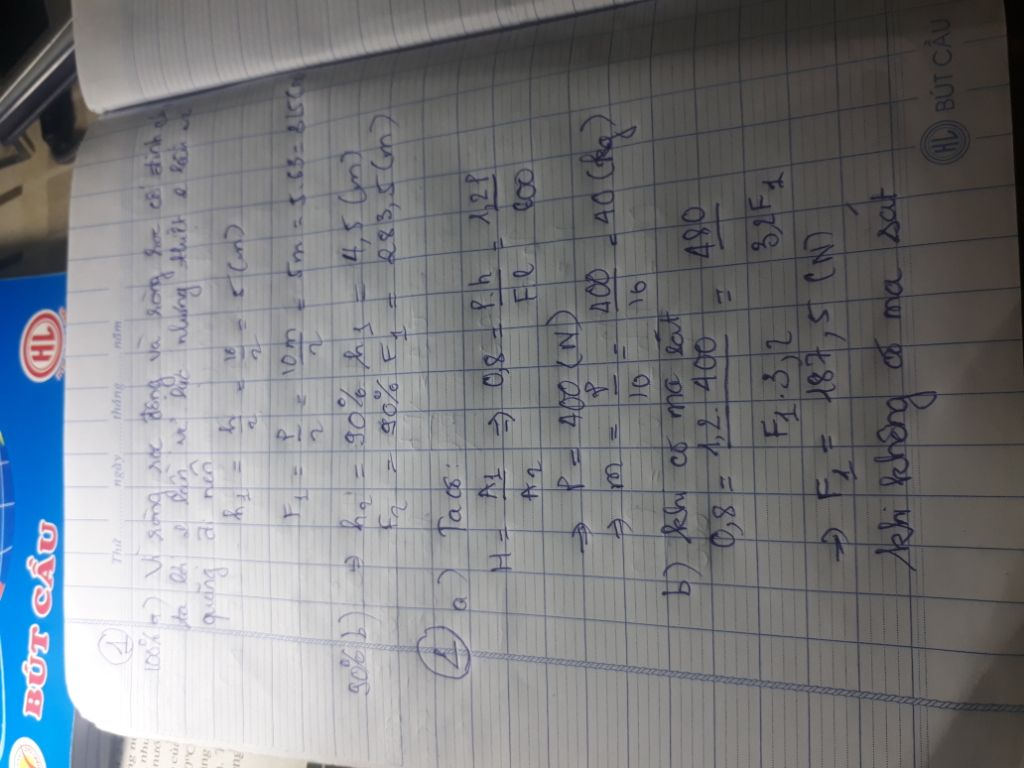 BÚT CẦU
HL
Thứ ngày tháng năm
①
100% a) Vì sòng rọc động và sòng rọc cố định
ta lợi 2 lần về lực nhưng thiệt 2 lần về
quãng đi nên
h₁ = h/2 = 10/2 = 5 (m)
F₁ = P/2 = 10m/2 = 5m = 5.63 = 315
90% b) ⇒ h₂ = 90% h₁ = 4,5 (m)
F₂ = 90% F₁ = 283,5 (N)
①
a) Ta có:
H = A₁/A₂ ⇒ 0,8 = P.h/F.l = 1,2P/600
⇒ P = 400 (N)
⇒ m = P/10 = 400/10 = 40 (kg)
b) khi có ma sát
0,8 = 1,2.400/F₁.3,2 = 480/3,2F₁
⇒ F₁ = 187,5 (N)
khi không có ma sát
HL BÚT CẦU